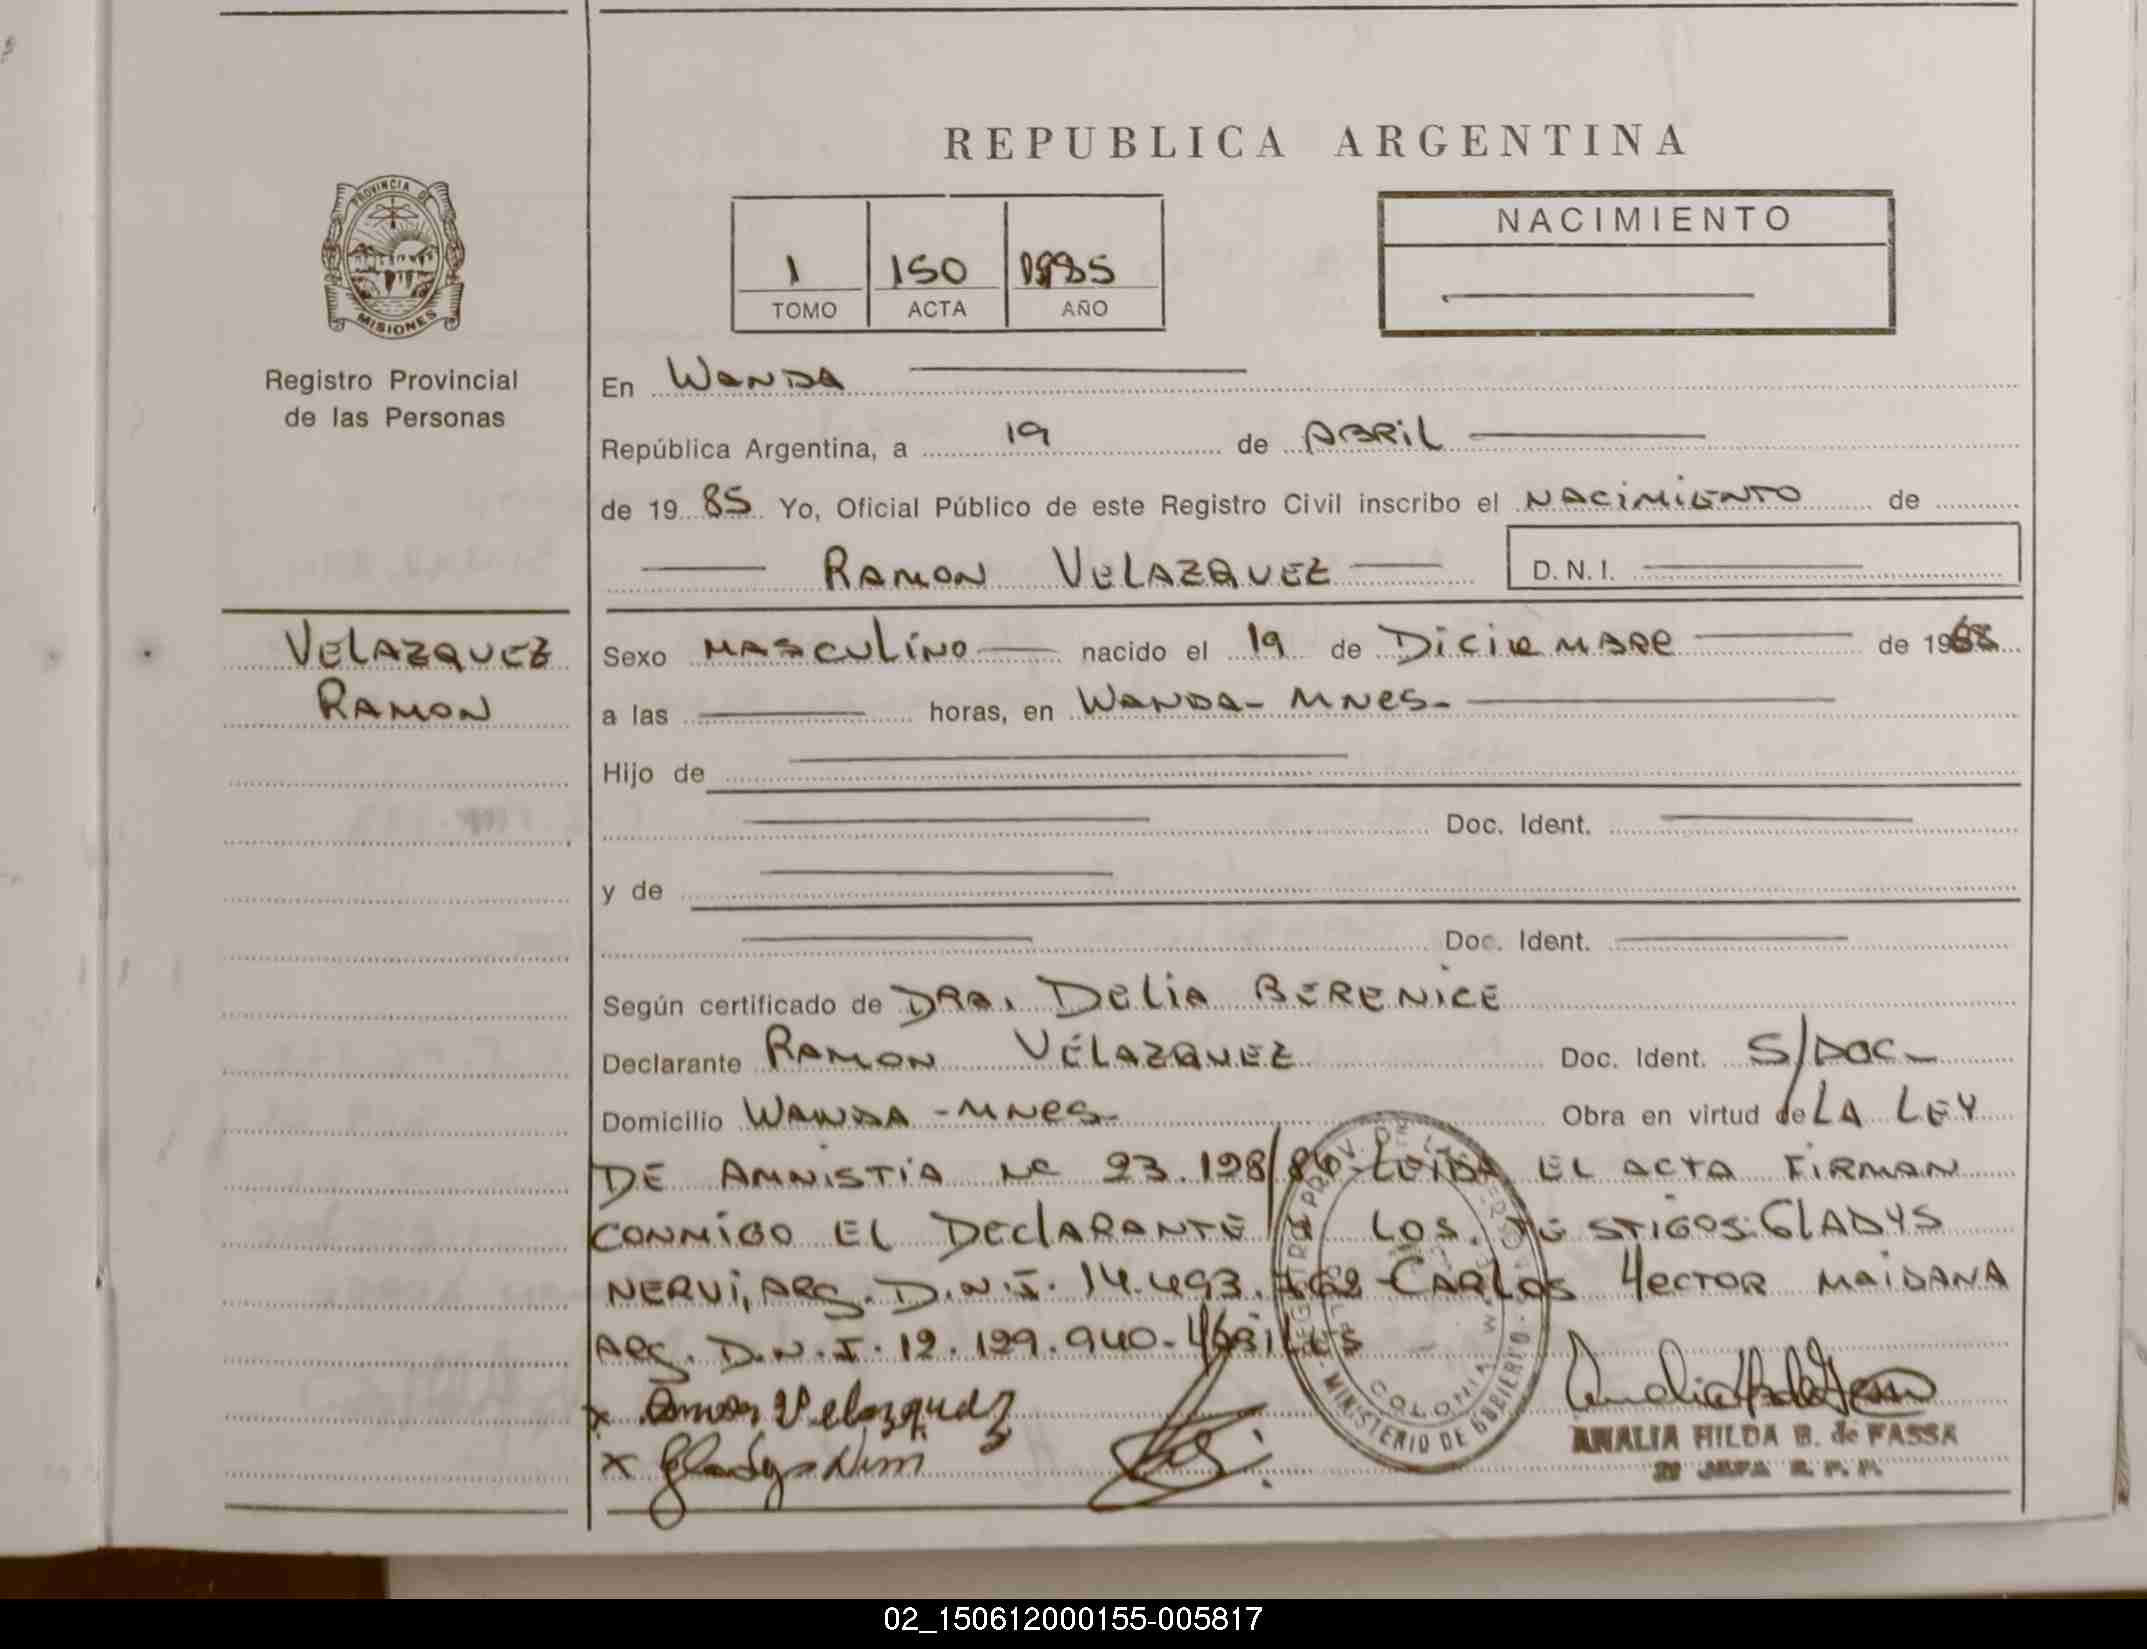 REPUBLICA ARGENTINA
PROVINCIA DE
MISIONES
Registro Provincial
de las Personas
1 150 1985
TOMO ACTA AÑO
NACIMIENTO
En WANDA
República Argentina, a 19 de ABRIL
de 19 85 Yo, Oficial Público de este Registro Civil inscribo el NACIMIENTO de
RAMON VELAZQUEZ D. N. I.
VELAZQUEZ
RAMON
Sexo MASCULINO nacido el 19 de DICIEMBRE de 1968
a las horas, en WANDA - MNES -
Hijo de
Doc. Ident.
y de
Doc. Ident.
Según certificado de DRA. DELIA BERENICE
Declarante RAMON VELAZQUEZ Doc. Ident. S/DOC -
Domicilio WANDA - MNES - Obra en virtud de LA LEY
DE AMNISTIA Nº 23.128/84 - LEIDA EL ACTA FIRMAN
CONMIGO EL DECLARANTE Y LOS TESTIGOS: GLADYS
NERVI, ARG. D.N.I. 14.493.162 - CARLOS HECTOR MAIDANA
ARG. D.N.I. 12.129.940 -
x Velazquez
x Gladys
MINISTERIO DE GOBIERNO
COLONIA W
ANALIA HILDA B. de FASSA
02_150612000155-005817